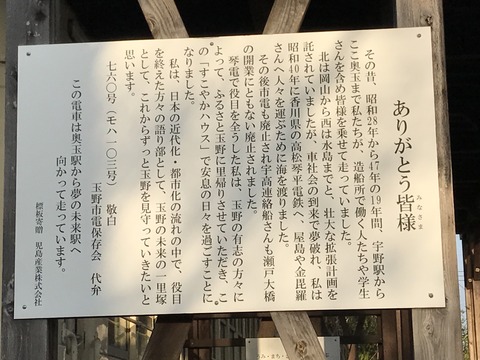 ありがとう皆様
みなさま
その昔、昭和28年から47年の19年間、宇野駅から
ここ奥玉まで私たちが、造船所で働く人たちや学生
さんを含め皆様を乗せて走っていました。
北は岡山から西は水島までと、壮大な拡張計画を
託されていましたが、車社会の到来で夢破れ、私は
昭和40年に香川県の高松琴平電鉄へ、屋島や金毘羅
さんへ人々を運ぶために海を渡りました。
その後市電も廃止され宇高連絡船さんも瀬戸大橋
の開業にともない廃止されました。
琴電で役目を全うした私は、玉野の有志の方々に
よって、ふるさと玉野に里帰りさせていただき、こ
の「すこやかハウス」で安息の日々を過ごすことに
なりました。
私は、日本の近代化・都市化の流れの中で、役目
を終えた方々の語り部として、玉野の未来の一里塚
として、これからずっと玉野を見守っていきたいと
思います。
七六〇号(モハ一〇三号) 敬白
玉野市電保存会 代弁
この電車は奥玉駅から夢の未来駅へ
向かって走っています。
標板寄贈 児島産業株式会社